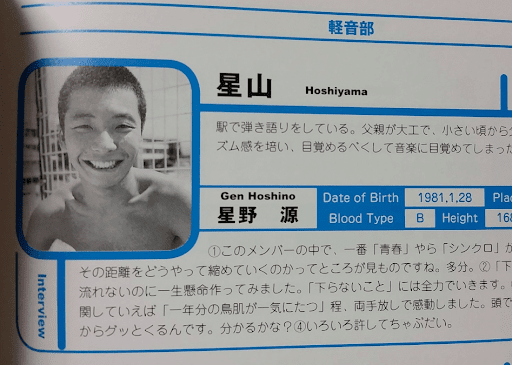 軽音部
星山 Hoshiyama
駅で弾き語りをしている。父親が大工で、小さい頃から
ズム感を培い、目覚めるべくして音楽に目覚めてしまった
Gen Hoshino
星野 源
Date of Birth 1981,1.28
Blood Type B Height 168
①このメンバーの中で、一番「青春」やら「シンクロ」か
その距離をどうやって縮めていくのかってところが見ものですね。多分。②「下
流れないのに一生懸命作ってみました。「下らないこと」には全力でいきます。
関していえば「一年分の鳥肌が一気にたつ」程、両手放しで感動しました。頭で
からグッとくるんです。分かるかな？④いろいろ許してちゃぶだい。
Interview